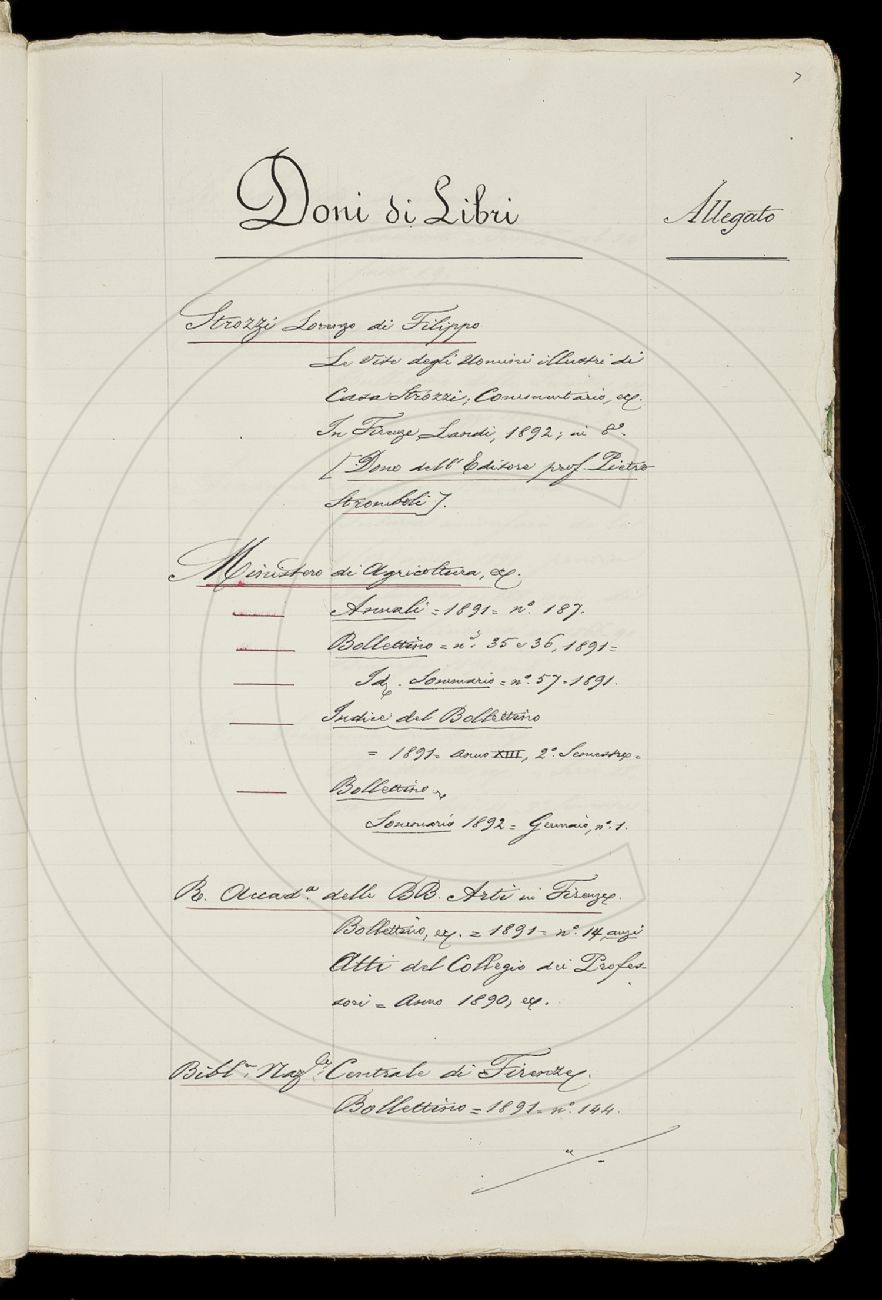 7
Doni di Libri
Allegato
Strozzi Lorenzo di Filippo
Le Vite degli Uomini illustri di
Casa Strozzi; Commentario, ec.
In Firenze, Landi, 1892; in 8º.
[Dono dell' Editore prof. Pietro
Stromboli].
Ministero di Agricoltura, ec.
Annali = 1891 = nº. 187.
Bollettino = ni. 35 e 36, 1891 =
Id. Sommario = nº. 57 = 1891.
Indice del Bollettino
= 1891 = anno XIII, 2º. Semestre =
Bollettino
Sommario 1892 = Gennaio, nº. 1.
R. Accadª. delle BB. Arti in Firenze.
Bollettino, ec. = 1891 = nº. 14, anzi
Atti del Collegio dei Profes-
sori = Anno 1890, ec.
Bibl.ª Naz.le Centrale di Firenze.
Bollettino = 1891 = nº. 144.